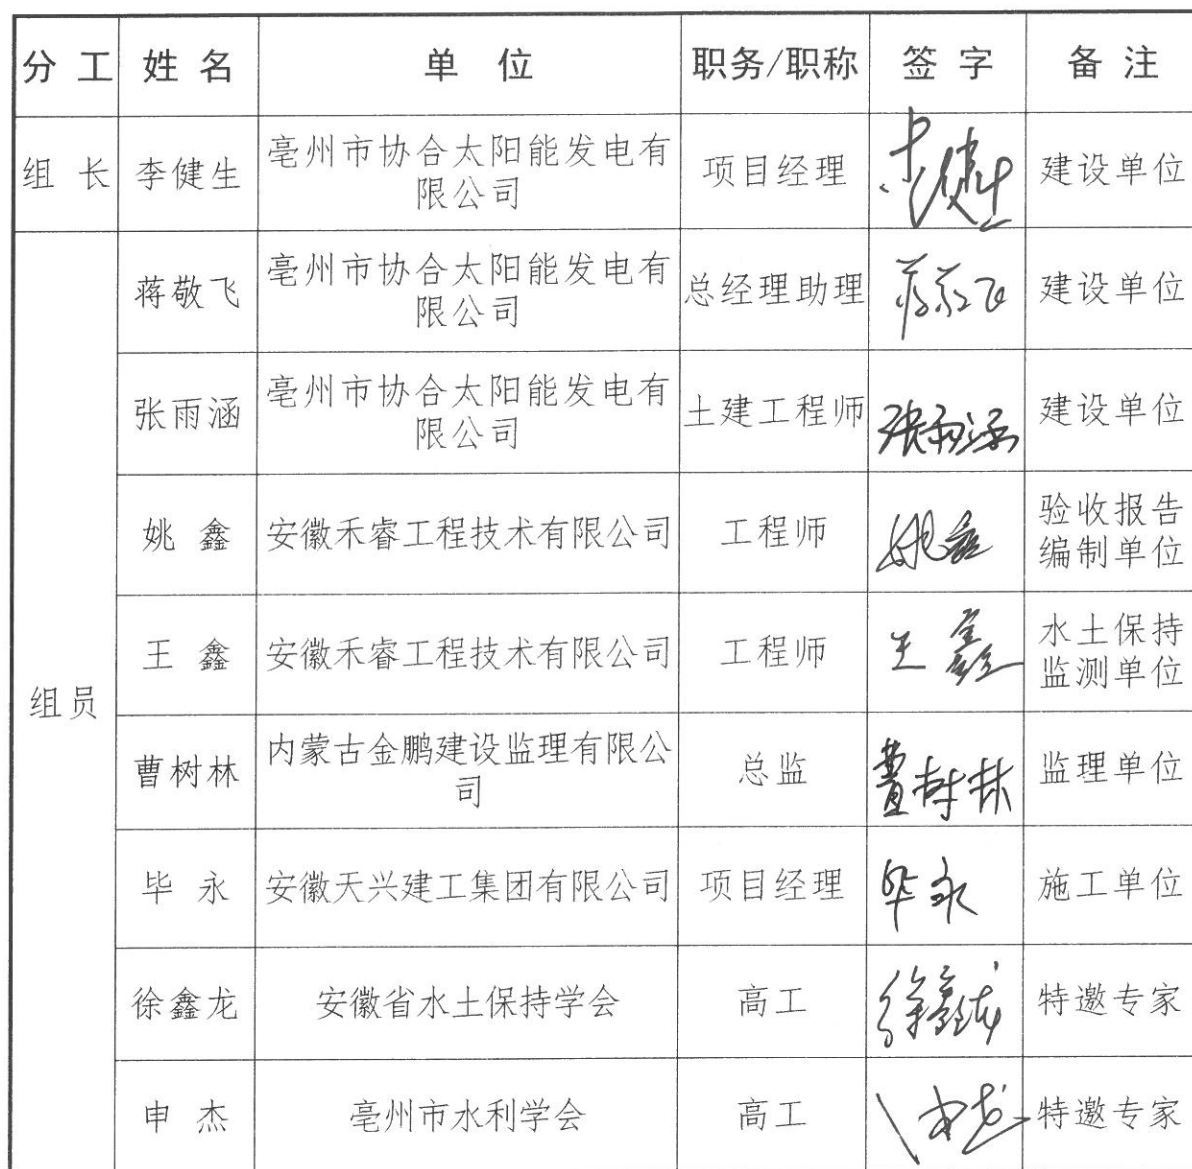 分工 姓名 单位 职务/职称 签字 备注
组长 李健生 亳州市协合太阳能发电有限公司 项目经理 李健生 建设单位
组员
蒋敬飞 亳州市协合太阳能发电有限公司 总经理助理 蒋敬飞 建设单位
张雨涵 亳州市协合太阳能发电有限公司 土建工程师 张雨涵 建设单位
姚鑫 安徽禾睿工程技术有限公司 工程师 姚鑫 验收报告编制单位
王鑫 安徽禾睿工程技术有限公司 工程师 王鑫 水土保持监测单位
曹树林 内蒙古金鹏建设监理有限公司 总监 曹树林 监理单位
毕永 安徽天兴建工集团有限公司 项目经理 毕永 施工单位
徐鑫龙 安徽省水土保持学会 高工 徐鑫龙 特邀专家
申杰 亳州市水利学会 高工 申杰 特邀专家